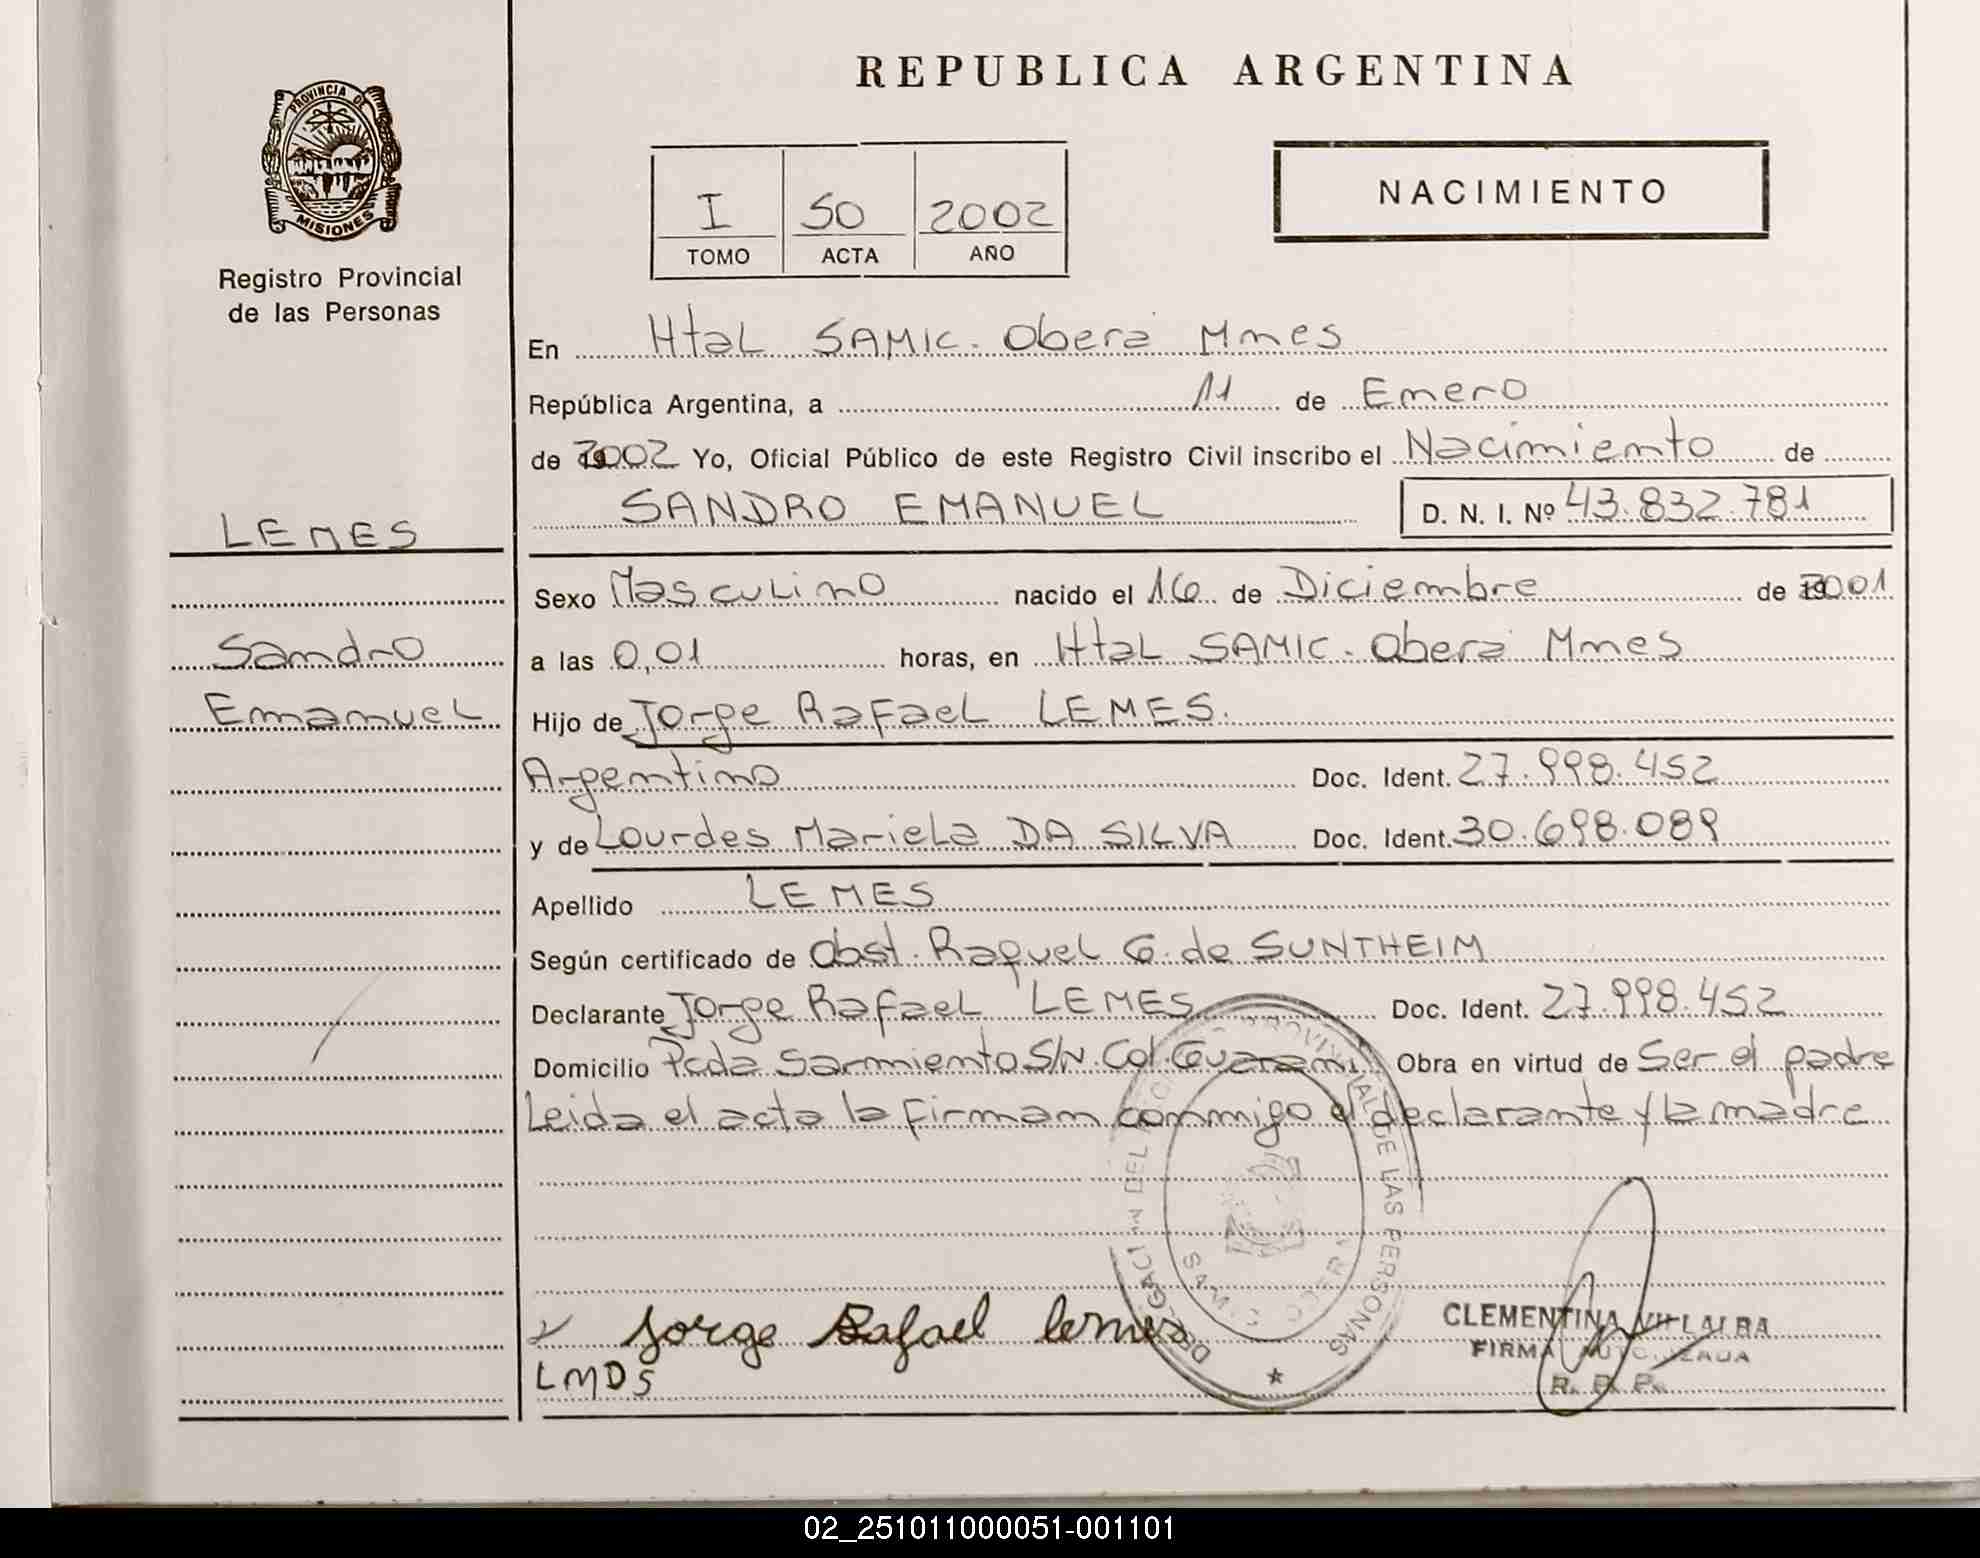 REPUBLICA ARGENTINA
PROVINCIA DE
MISIONES
Registro Provincial
de las Personas
I 50 2002
TOMO ACTA AÑO
NACIMIENTO
En Htal SAMIC. Oberá Mnes
República Argentina, a 11 de Enero
de 2002 Yo, Oficial Público de este Registro Civil inscribo el Nacimiento de
SANDRO EMANUEL D. N. I. Nº 43.832.781
LEMES
Sandro
Emanuel
Sexo Masculino nacido el 16 de Diciembre de 2001
a las 0,01 horas, en Htal SAMIC. Oberá Mnes
Hijo de Jorge Rafael LEMES.
Argentino Doc. Ident. 27.998.452
y de Lourdes Mariela DA SILVA Doc. Ident. 30.698.089
Apellido LEMES
Según certificado de Obst. Raquel G. de SUNTHEIM
Declarante Jorge Rafael LEMES Doc. Ident. 27.998.452
Domicilio Pcda Sarmiento S/N. Col. Guaraní Obra en virtud de Ser el padre
Leida el acta la firman conmigo el declarante y la madre
DE LAS PERSONAS
Jorge Rafael lemes
LMDS
CLEMENTINA VILLALBA
FIRMA AUTORIZADA
R. P. P.
02_251011000051-001101